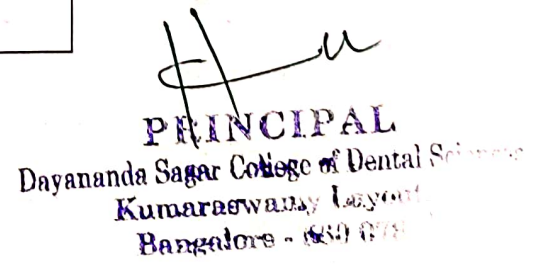 PRINCIPAL
Dayananda Sagar College of Dental
Kumaraswamy Layout
Bangalore -